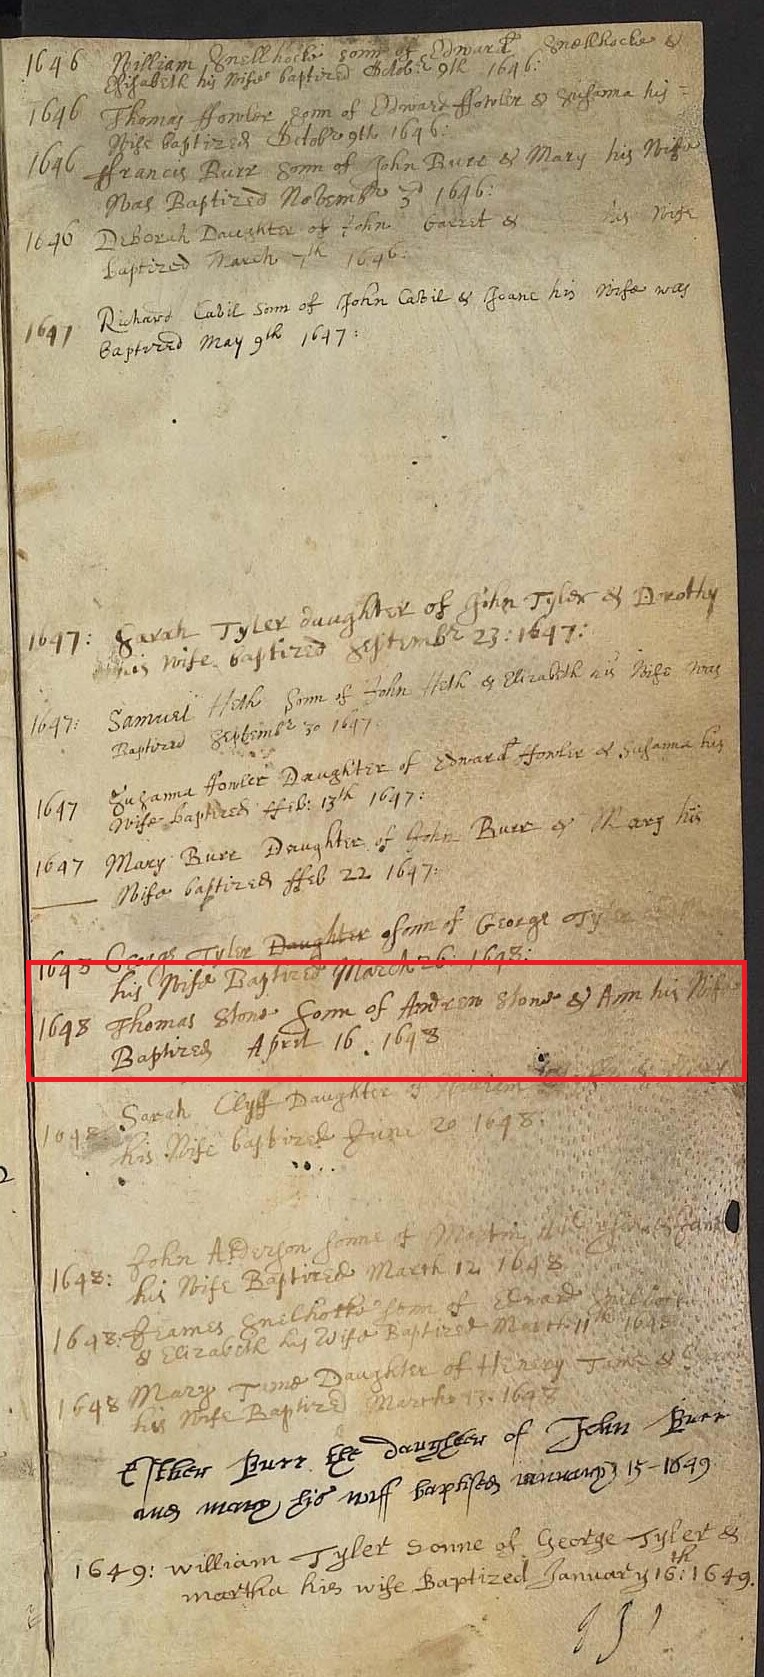 1646 William Snellhocke sonn of Edward Snellhocke &
Elisabeth his Wife baptized Octobr 9th 1646:
1646 Thomas ffowler sonn of Edward ffowler & Susanna his =
Wife baptized Octobr 9th 1646:
1646 ffrancis Burr sonn of John Burr & Mary his Wife
Was Baptized Novembr 3d 1646:
1646 Deborah Daughter of John Garret & his Wife
baptized March 7th 1646:
1647 Richard Cabil sonn of John Cabil & Joane his Wife was
baptized May 9th 1647:
1647: Sarah Tyler daughter of John Tyler & Drothy
his Wife baptized Septembr 23: 1647:
1647: Samuel Heth sonn of John Heth & Elizabeth his Wife was
Baptized Septembr 30 1647:
1647 Suzanna ffowler Daughter of Edward ffowler & Susanna his
Wife baptized ffeb: 13th 1647:
1647 Mary Burr Daughter of John Burr & Mary his
Wife baptized ffeb 22 1647:
1648 George Tyler Daughter sonn of George Tyler
his Wife Baptized March 26: 1648:
1648 Thomas Stone Sonn of Andrew Stone & Ann his Wife
Baptized April 16. 1648
1648: Sarah Clyff Daughter of William
his Wife baptized June 20 1648.
1648: John Aderson sonne of Martin
his Wife Baptized March 12 1648
1648: Jeames Snelhocke sonn of Edward
& Elizabeth his Wife Baptized March 11th 1648
1648 Mary Tame Daughter of Henery Tame &
his Wife Baptized Marche 13. 1648
Esther Burr the daughter of John Burr
and mary his wiff baptised ianuary 15-1649
1649: william Tyler sonne of George Tyler &
martha his wife Baptized January 16th: 1649.